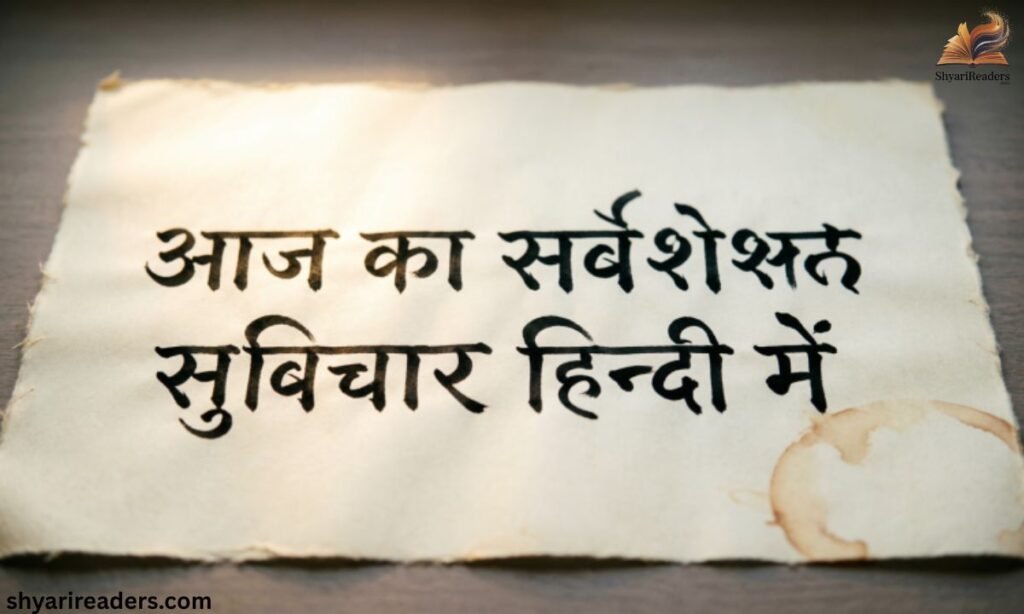 ShyariReaders
आज का
सुविचार हिन्दी में
shyarireaders.com